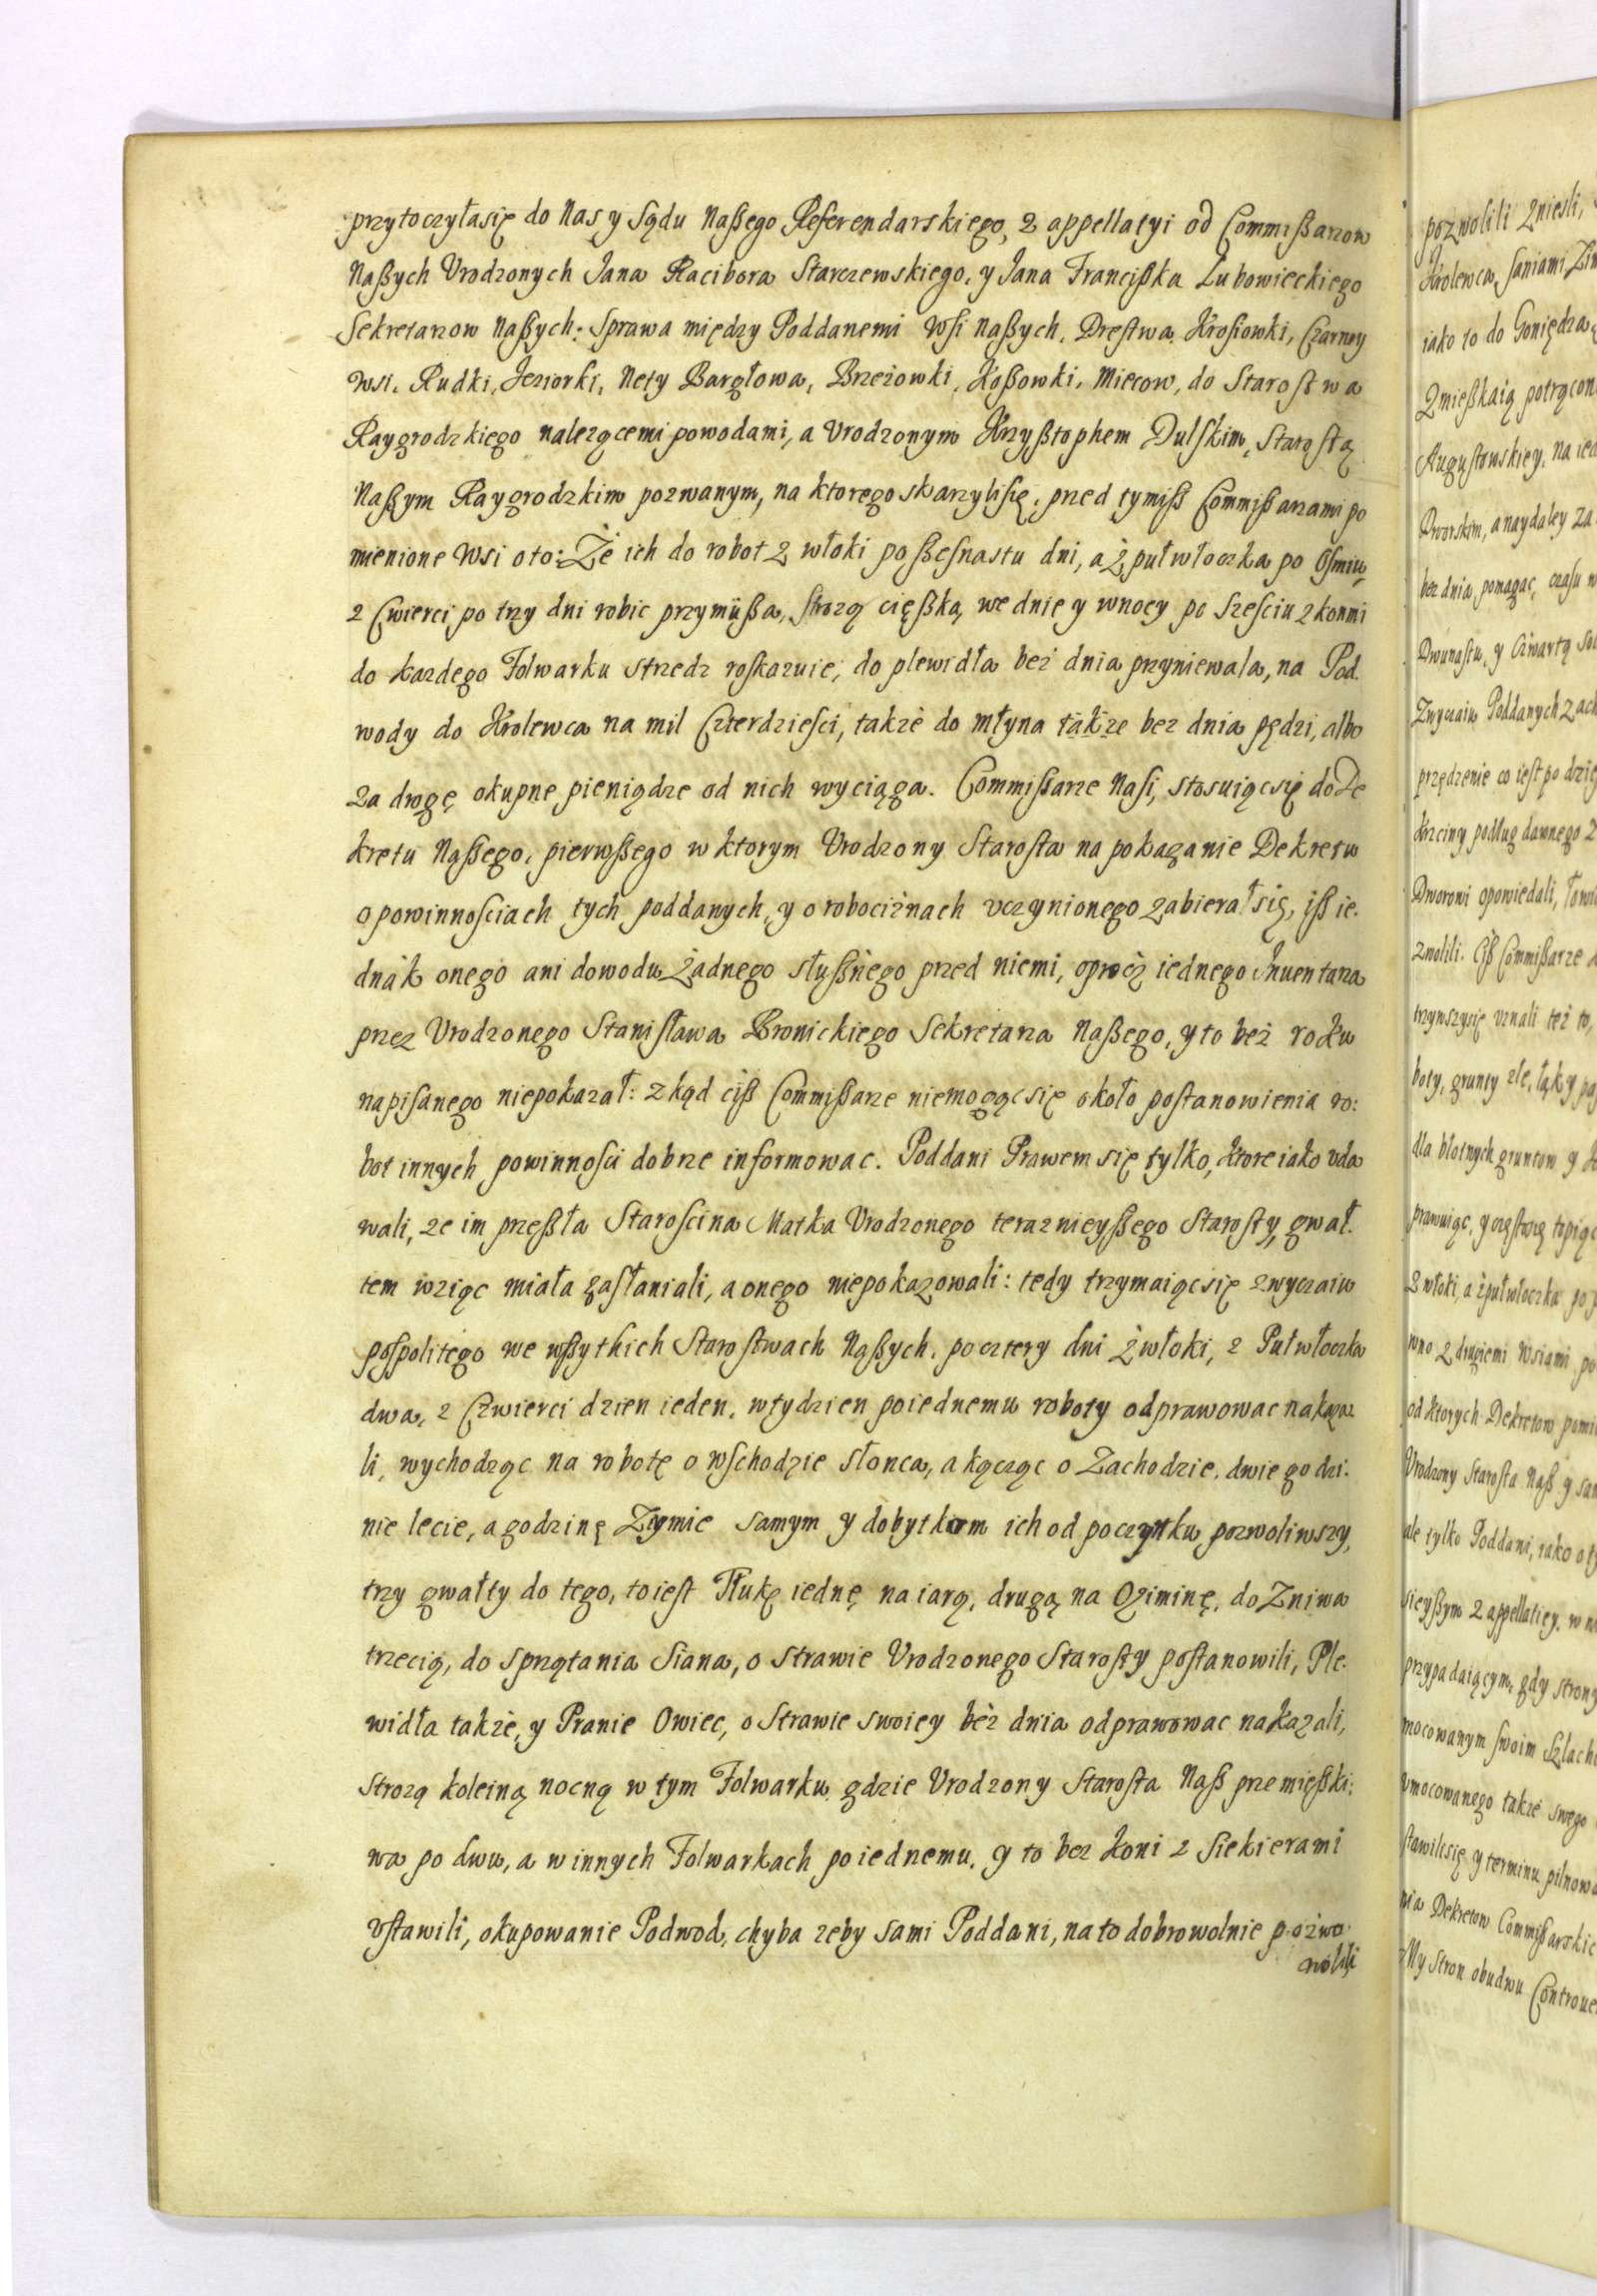 przytoczyłasię do Nas y Sądu Naßego Referendarskiego, z appellatyi od Commißarzow
Naßych Vrodzonych Jana Racibora Starczewskiego, y Jana Francißka Lubowieckiego
Sekretarzow Naßych: Sprawa między Poddanemi Wsi Naßych, Dręstwa, Krosiowki, Czarney
Wsi, Rudki, Jeziorki, Nety Bargłowa, Brzezowki, Koßowki, Miecow, do Starostwa
Raygrodzkiego nalezącemi powodami, a Vrodzonym Krzyßtophem Dulskim, Starostą
Naßym Raygrodzkim pozwanym, na ktorego skarzylisię, przed tymiß Commißarzami po
mienione Wsi oto: Że ich do robot z włoki po ßesnastu dni, a z puł włoczka po Osmiu,
z Cwierci po trzy dni robic przymüßa, Strozą cięßką we dnie y wnocy po Szesciu z konmi
do kazdego Folwarku strzedz roskazuie, do plewidła beż dnia przyniewala, na Pod.
wody do Krolewca na mil Czterdziesci, takze do młyna takze bez dnia pędzi, albo
za drogę okupne pieniądze od nich wyciąga. Commißarze Nasi, stosuiącsię do De
kretu Naßego, pierwßego w ktorym Vrodzony Starosta na pokazanie Dekretu
o powinnosciach tych poddanych, y o robociznach vczynionego zabierał się, iß ie.
dnak onego ani dowodu żadnego słußnego przed niemi, oprocz iednego Jnuentarza
przez Vrodzonego Stanisława Bronickiego Sekretarza Naßego, y to beż roku
napisanego niepokazał: zkąd ciß Commißarze niemogącsię około postanowienia ro:
bot innych powinnosci dobrze informowac. Poddani Prawem się tylko, ktore iako vda
wali, ze im przeßła Staroscina Matka Vrodzonego teraznieyßego Starosty, gwał.
tem wziąc miała zasłaniali, a onego niepokazowali: tedy trzymaiącsię zwyczaiu
pospolitego we wßytkich Starostwach Naßych, po cztery dni z włoki, z Puł włoczka
dwa, z Czwierci dzien ieden, w tydzien poiednemu roboty odprawowac nakaza
li, wychodząc na robotę o wschodzie słonca, a kącząc o Zachodzie, dwie godzi.
nie lecie, a godzinę Zymie samym y dobytkom ich od poczynku pozwoliwszy,
trzy gwałty do tego, toiest Tłukę iednę na iarą, drugą na Oziminę, do Zniwa
trzecią, do sprzątania Siana, o strawie Vrodzonego Starosty postanowili, Ple.
widła takze, y Pranie Owiec, o Strawie swoiey beż dnia odprawowac nakazali,
strozą koleiną nocną w tym Folwarku gdzie Vrodzony Starosta Naß przemießki.
wa po dwu, a w innych Folwarkach po iednemu, y to bez koni z Siekierami
vstawili, okupowanie Podwod, chyba zeby sami Poddani, na to dobrowolnie pozwo
wolili
pozwolili Zniesli,
Krolewca, saniami
iako to do Goniędza
Zmießkaią
Augustowskiey, na
Dworskim, a naydaley za
bez dnia pomagac, czasu
Dwunastu, y Czwartą
Zwyczaiu Poddanych
przędzenie co iest po
krzciny podług dawnego
Dworowi opowiedali,
zwolili. Ciß Commißarze
vznali też to,
boty, grunty złe, łąki
dla błotnych gruntow y
z włoki, a z puł włoczka po
wno z drugiemi Wsiami po
od ktorych Dekretow
Vrodzony Starosta Naß y
ale tylko Poddani, iako
sieyßym z appellatiey, w
przypadaiącym, gdy strony
mocowanym swoim
vmocowanego takze swego
stawilisię y terminu
nia Dekretow
My Stron obudwu